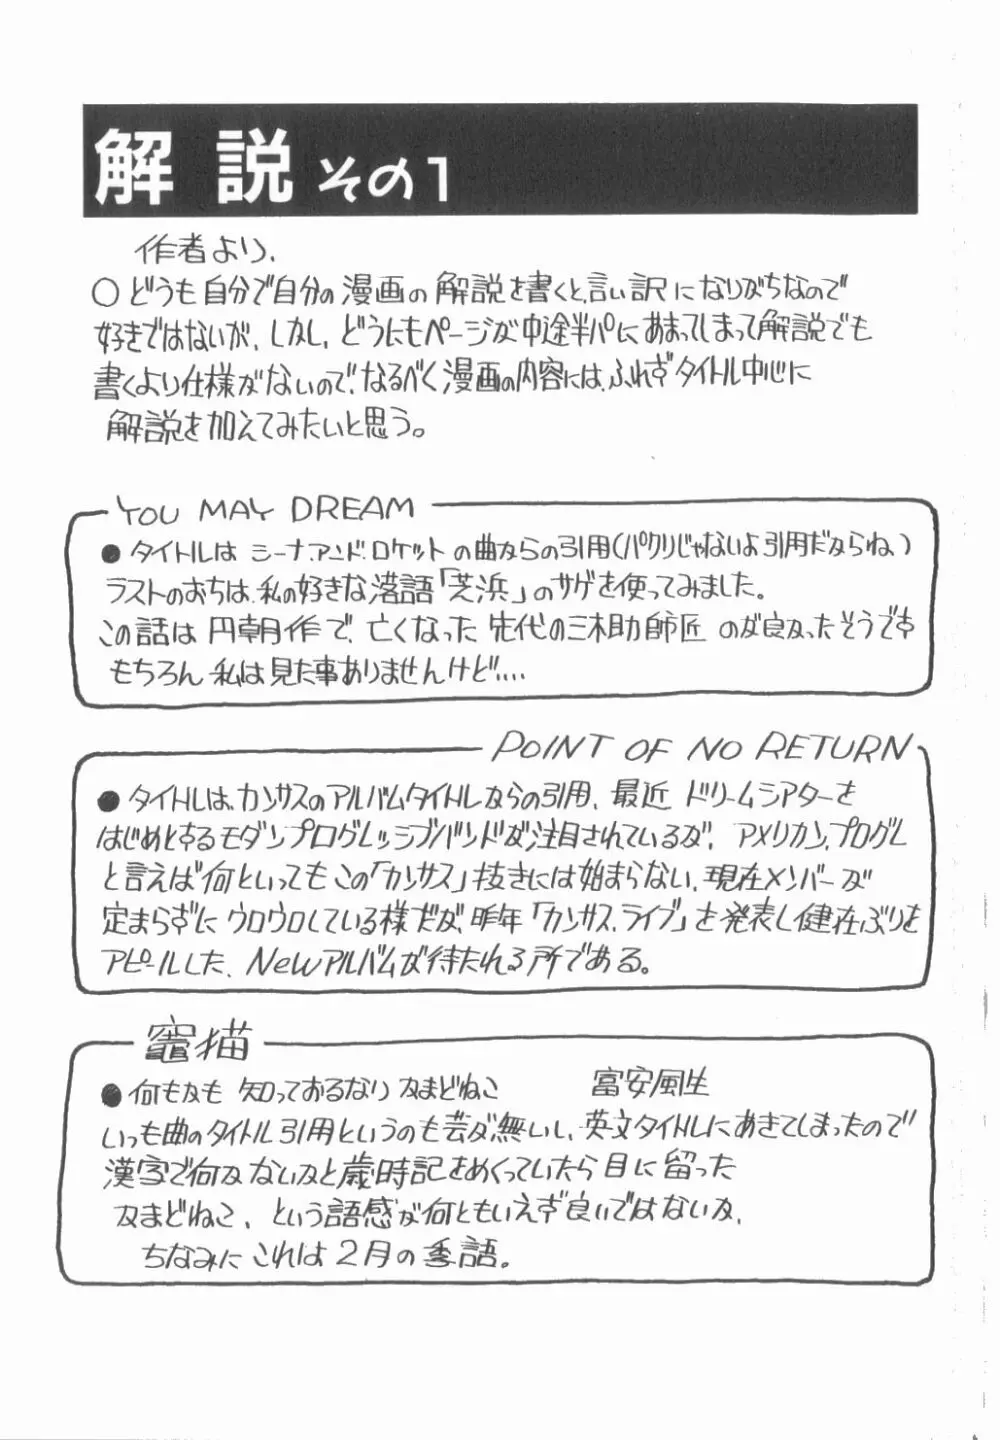 解説 その1
作者より、
○どうも自分で自分の漫画の解説を書くと、言い訳になりがちなので
好きではないが、しかし、どうにもページが中途半パにあまってしまって解説でも
書くより仕様がないので、なるべく漫画の内容には、ふれずタイトル中心に
解説を加えてみたいと思う。
YOU MAY DREAM
●タイトルは シーナ.アンド.ロケット の曲からの引用(パクリじゃないよ引用だからね)
ラストのおちは、私の好きな落語「芝浜」のサゲを使ってみました。
この話は 円朝作で、亡くなった 先代の三木助師匠 のが良かったそうです
もちろん 私は見た事ありませんけど....
POINT OF NO RETURN
●タイトルは、カンサスのアルバムタイトルからの引用、最近 ドリームシアターを
はじめとするモダンプログレッシブバンドが注目されているが、アメリカン.プログレ
と言えば何といってもこの「カンサス」抜きには始まらない、現在メンバーが
定まらずにウロウロしている様だが、昨年「カンサス.ライブ」を発表し健在ぶりを
アピールした、Newアルバムが待たれる所である。
竈猫
●何もかも 知っておるなり かまどねこ 富安風生
いつも曲のタイトル引用というのも芸が無いし、英文タイトルにあきてしまったので
漢字で何かないかと歳時記をめくっていたら目に留った
かまどねこ、という語感が何ともいえず良いではないか、
ちなみにこれは2月の季語。